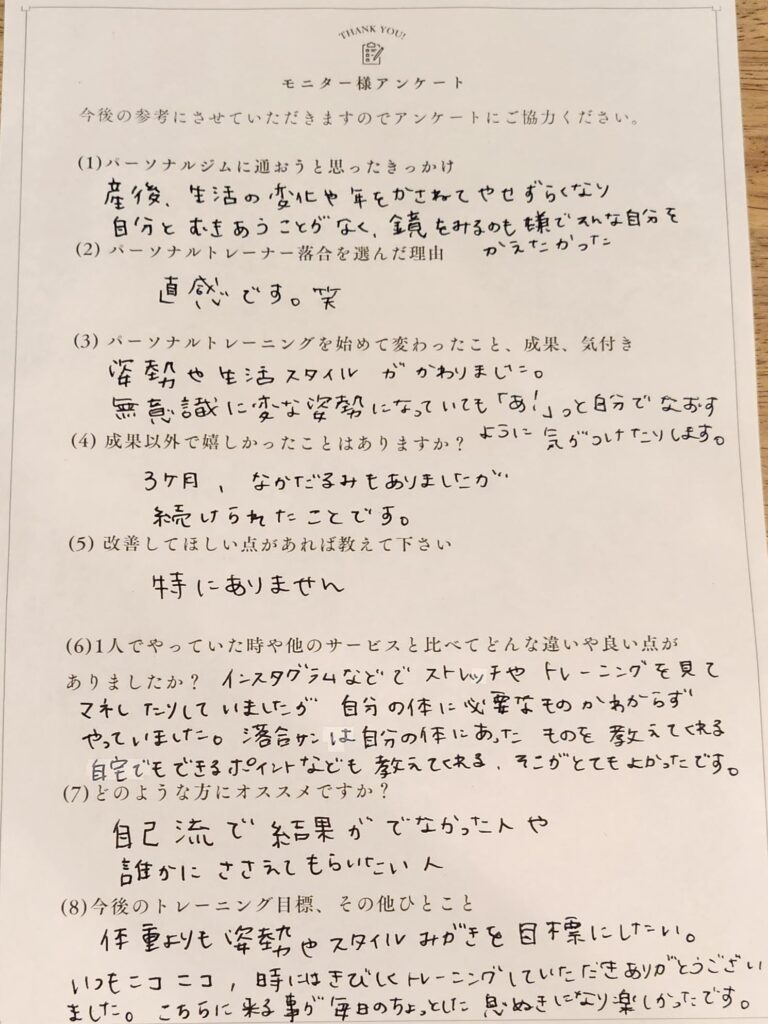 THANK YOU!
モニター様アンケート
今後の参考にさせていただきますのでアンケートにご協力ください。
(1)パーソナルジムに通おうと思ったきっかけ
産後、生活の変化や年をかさねてやせずらくなり
自分とむきあうことがなく、鏡をみるのも嫌でそんな自分を
かえたかった
(2) パーソナルトレーナー落合を選んだ理由
直感です。笑
(3) パーソナルトレーニングを始めて変わったこと、成果、気付き
姿勢や生活スタイルがかわりました。
無意識に変な姿勢になっていても「あ!」っと自分でなおす
ように気がつけたりします。
(4) 成果以外で嬉しかったことはありますか?
3ケ月、なかだるみもありましたが
続けられたことです。
(5) 改善してほしい点があれば教えて下さい
特にありません
(6)1人でやっていた時や他のサービスと比べてどんな違いや良い点が
ありましたか? インスタグラムなどでストレッチやトレーニングを見て
マネしたりしていましたが 自分の体に必要なものかわからず
やっていました。落合サンは自分の体にあったものを教えてくれる
自宅でもできるポイントなども教えてくれる、そこがとてもよかったです。
(7)どのような方にオススメですか?
自己流で結果がでなかった人や
誰かにささえてもらいたい人
(8)今後のトレーニング目標、その他ひとこと
体重よりも姿勢やスタイルみがきを目標にしたい。
いつもニコニコ、時にはきびしくトレーニングしていただきありがとうござい
ました。こちらに来る事が毎日のちょっとした息ぬきになり楽しかったです。